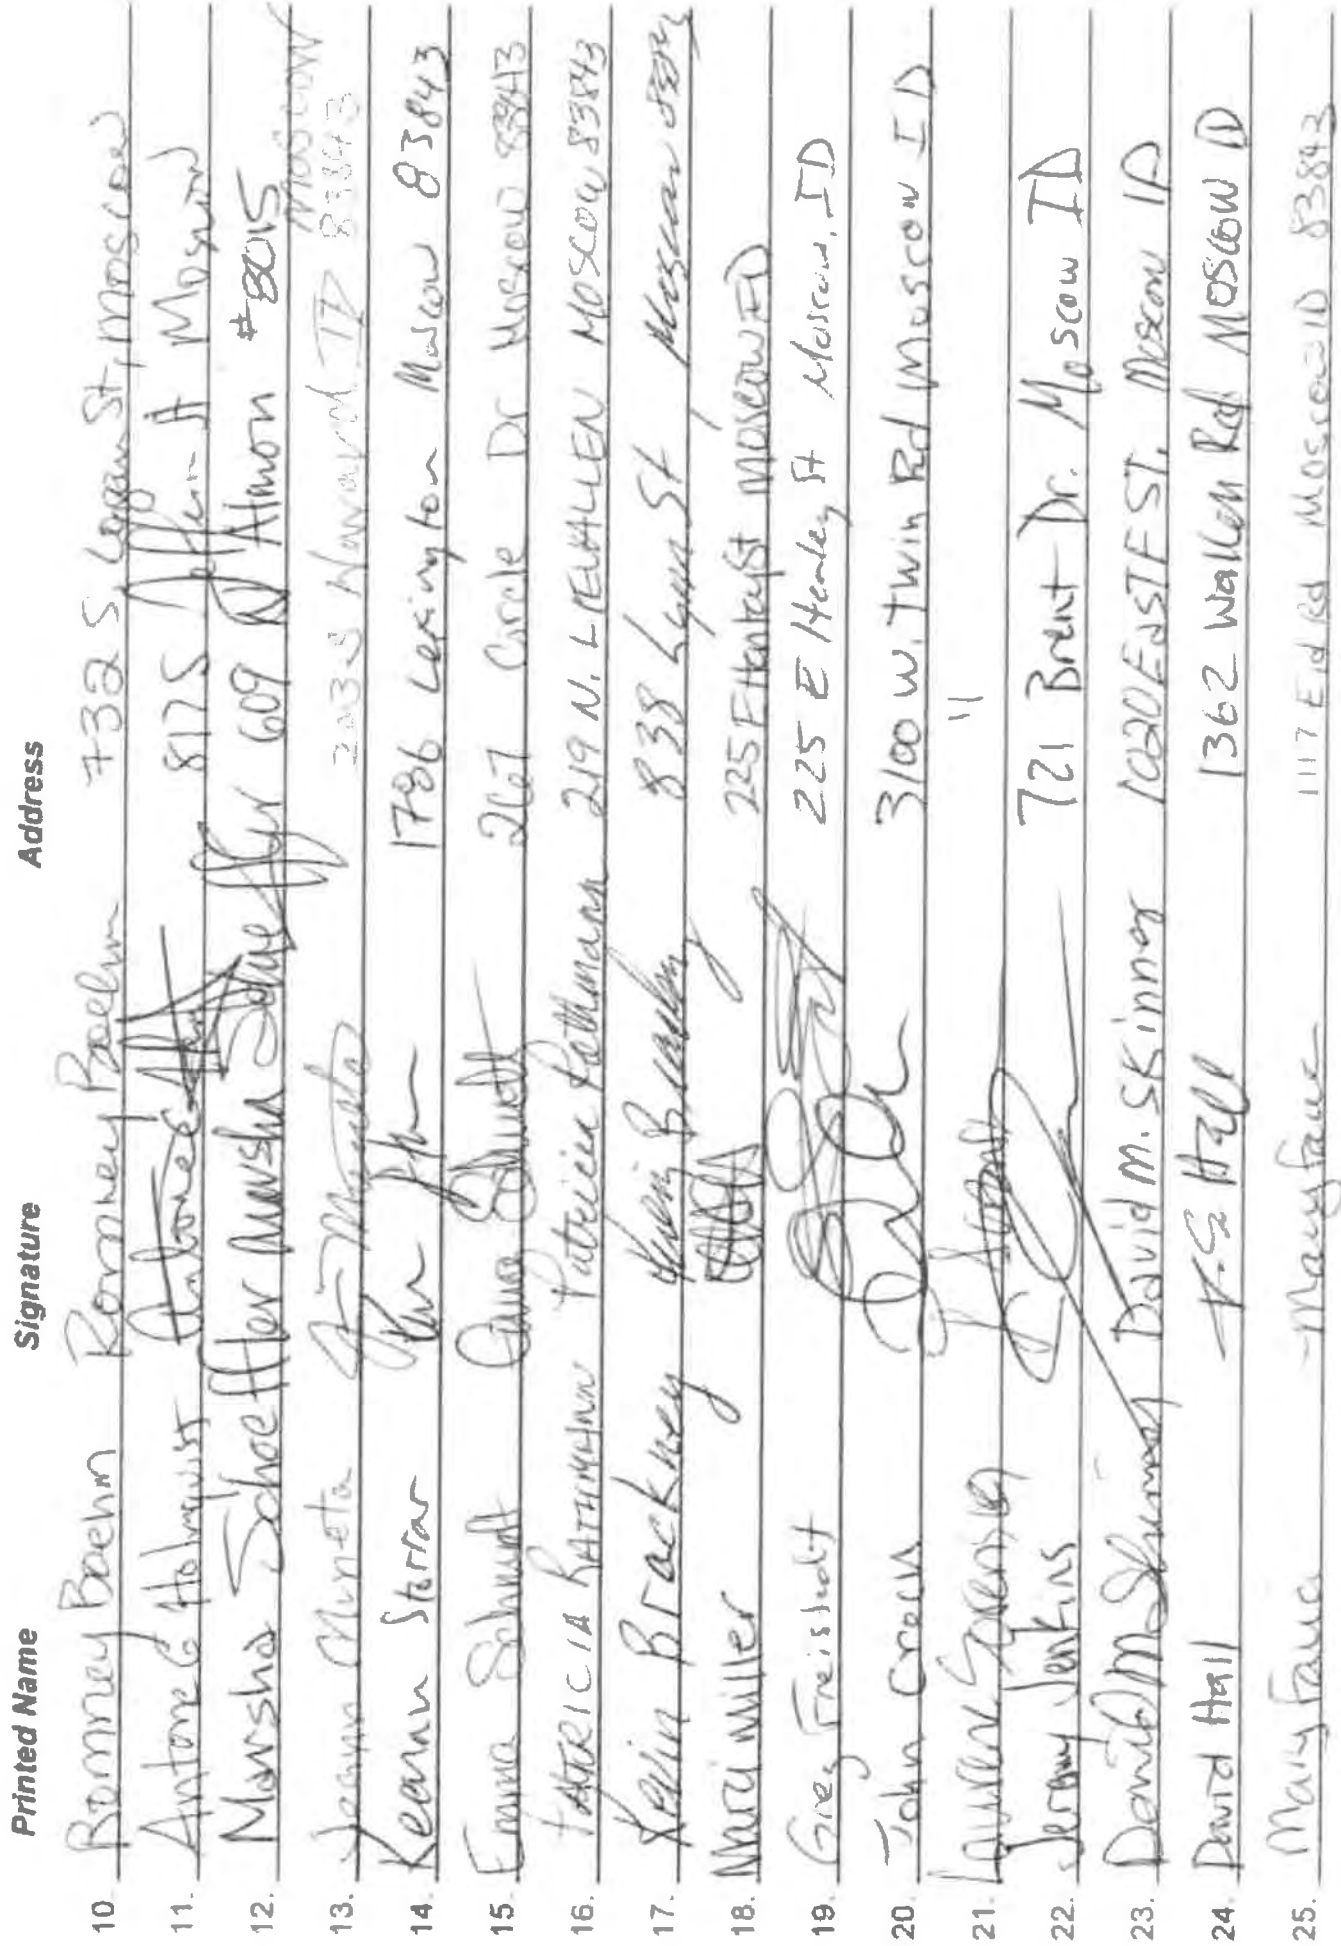 Printed Name Signature Address
10. Bonney Boehm Bonney Boehm 732 S Logan St, Moscow
11. Antone G Holmquist 817 S Moscow
12. Marsha Schoeffler Marsha Schoeffler 609 N Almon #8015
Moscow
13. Jean Muneta 203 S Howard ID 83843
14. Keann Storrar 1786 Lexington Moscow 83843
15. Emma Schmidt 267 Circle Dr Moscow 83843
16. PATRICIA RATHMANN Patricia Rathmann 219 N. LIEUALLEN MOSCOW 83843
17. Kevin Brackney Kevin Brackney 838 Lynn St Moscow 83843
18. Mari Miller 225 E Henley St MOSCOW ID
19. Greg Freistadt 225 E Henley St Moscow, ID
20. John Crock 3100 W. Twin Rd Moscow ID
21. Lauren "
22. Jeremy Jenkins 721 Brent Dr. Moscow ID
23. David M. Skinner 1020 East F ST. Moscow ID
24. David Hall Hall 1362 Wallen Rd MOSCOW ID
25. Mary Fauci Mary Fauci 1117 Eid Rd Moscow ID 83843